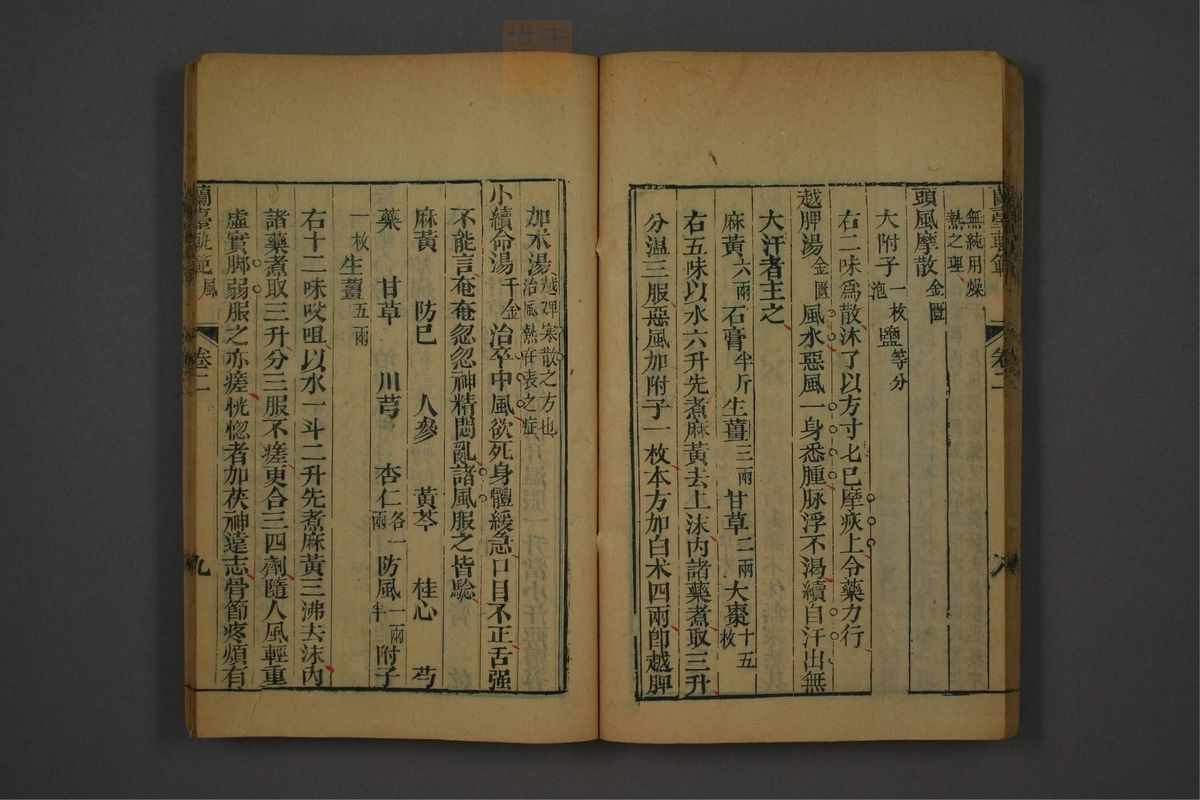 蘭臺軌範
卷二
八
無純用燥
熱之理
頭風摩散金匱
大附子一枚炮鹽等分
右二味爲散沐了以方寸七已摩疢上令藥力行
越脾湯金匱風水惡風一身悉腫脉浮不渴續自汗出無
大汗者主之
麻黃六兩石膏半斤生薑三兩甘草二兩大棗十五枚
右五味以水六升先煮麻黃去上沫內諸藥煮取三升
分温三服惡風加附子一枚本方加白术四兩卽越脾
加朮湯越脾寒散之方也治風熱在表之症
小續命湯千金治卒中風欲死身體緩急口目不正舌强
不能言奄奄忽忽神精悶亂諸風服之皆驗
麻黃防巳人參黃芩桂心芍
藥甘草川芎杏仁各一兩防風一兩半附子
一枚生薑五兩
右十二味㕮咀以水一斗二升先煮麻黃三沸去沫內
諸藥煮取三升分三服不瘥更合三四劑隨人風輕重
虛實脚弱服之亦瘥恍惚者加茯神遠志骨節疼煩有
蘭臺軌範風
卷二
九